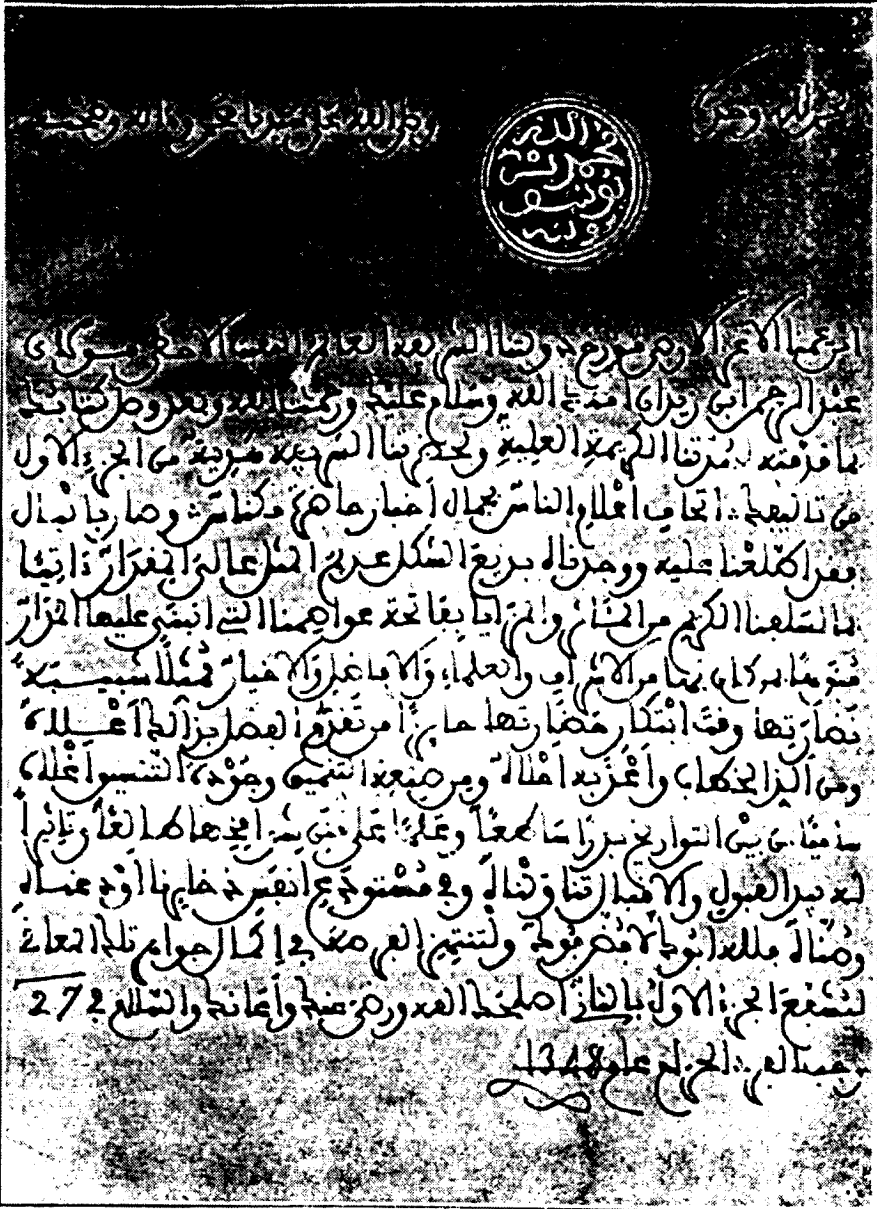 الحمد لله وحده
وصلى الله على سيدنا محمد وآله وصحبه
محمد بن
يوسف
الله وليه
ابن عمنا الأعز الأرضى مؤرخ دولتنا الشريفة العالم النقيب مولاي
عبد الرحمن ابن زيدان أمنك الله وسلام عليك ورحمة الله وبعد وصل كتابك
بما قدمته لسدتنا الكريمة العلية ولخزانتنا الشريفة هدية من الجزء الأول
من تاليفك: اتحاف أعلام الناس بجمال أخبار حاضرة مكناس: وصار بالبال
فقد اطلعنا عليه ووجدناه بديع الشكل عديم المثل عالي المقدار ذاكرا
ما لسلفنا الكريم من المئاثر والمزايا بفاتحة عواصمنا التي انبنى عليها المدار
منوها بمن كان بها من الأشراف والعلماء والأماثل والأخيار ممثلا شبيبة
نضارتها وقت ابتكار حضارتها حايزا من تقدم الفضل بذالك
ومن ألذ الخطاب وأعذبه أحلاه ومن صنعة التنميق وجودة التنسيق أغلاه
بين التواريخ بدرا ساطعا وعلما على
له يد القبول والإقبال تناولناه وفي مستودع أنفس ذخايرنا أودعناه
وصناه فلله أبوك لا فض فوك ولتنتهز الفرصة في إكمال جواهر تلك المعاني
لتشفع الجزء الأول بالثاني أصلحك الله ورضي عنك وأعانك والسلام في 27
قعدة الحرام عام 1348